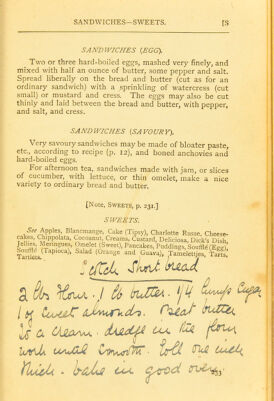 SANDWICHES—SWEETS. [S
SANDWICHES (EGG).
Two or three hard-boiled eggs, mashed very finely, and
mixed with half an ounce of butter, some pepper and salt.
Spread liberally on the bread and butter (cut as for an
ordinary sandwich) with a sprinkling of watercress (cut
small) or mustard and cress. The eggs may also be cut
thinly and laid between the bread and butter, with pepper,
and salt, and cress.
SANDWICHES (SAVOURY).
Very savoury sandwiches may be made of bloater paste,
etc., according to recipe (p. 12), and boned anchovies and
hard-boiled eggs.
For afternoon tea, sandwiches made with jam, or slices
of cucumber, with lettuce, or thin omelet, make a nice
variety to ordinary bread and butter.
[Note, SWEETS, p. 231.]
SWEETS.
See Apples, Blancmange, Cake (Tipsy), Charlotte Russe, Cheese-
cakes, Chippolata, Cocoanut, Creams, Custard, Deliciosa, Dick's Dish,
Jellies, Meringues, Omelet (Sweet), Pancakes, Puddings, Soufflé (Egg),
Soufflé (Tapioca), Salad (Orange and Guava), Tamelettjes, Tarts,
Tartlets.
Scotch Short bread
2 lbs flour. 1 lb butter. 1/4 lump sugar
1 oz sweet almonds. Beat butter
to a cream. dredge in the flour
work until smooth. roll one inch
thick. bake in good oven.